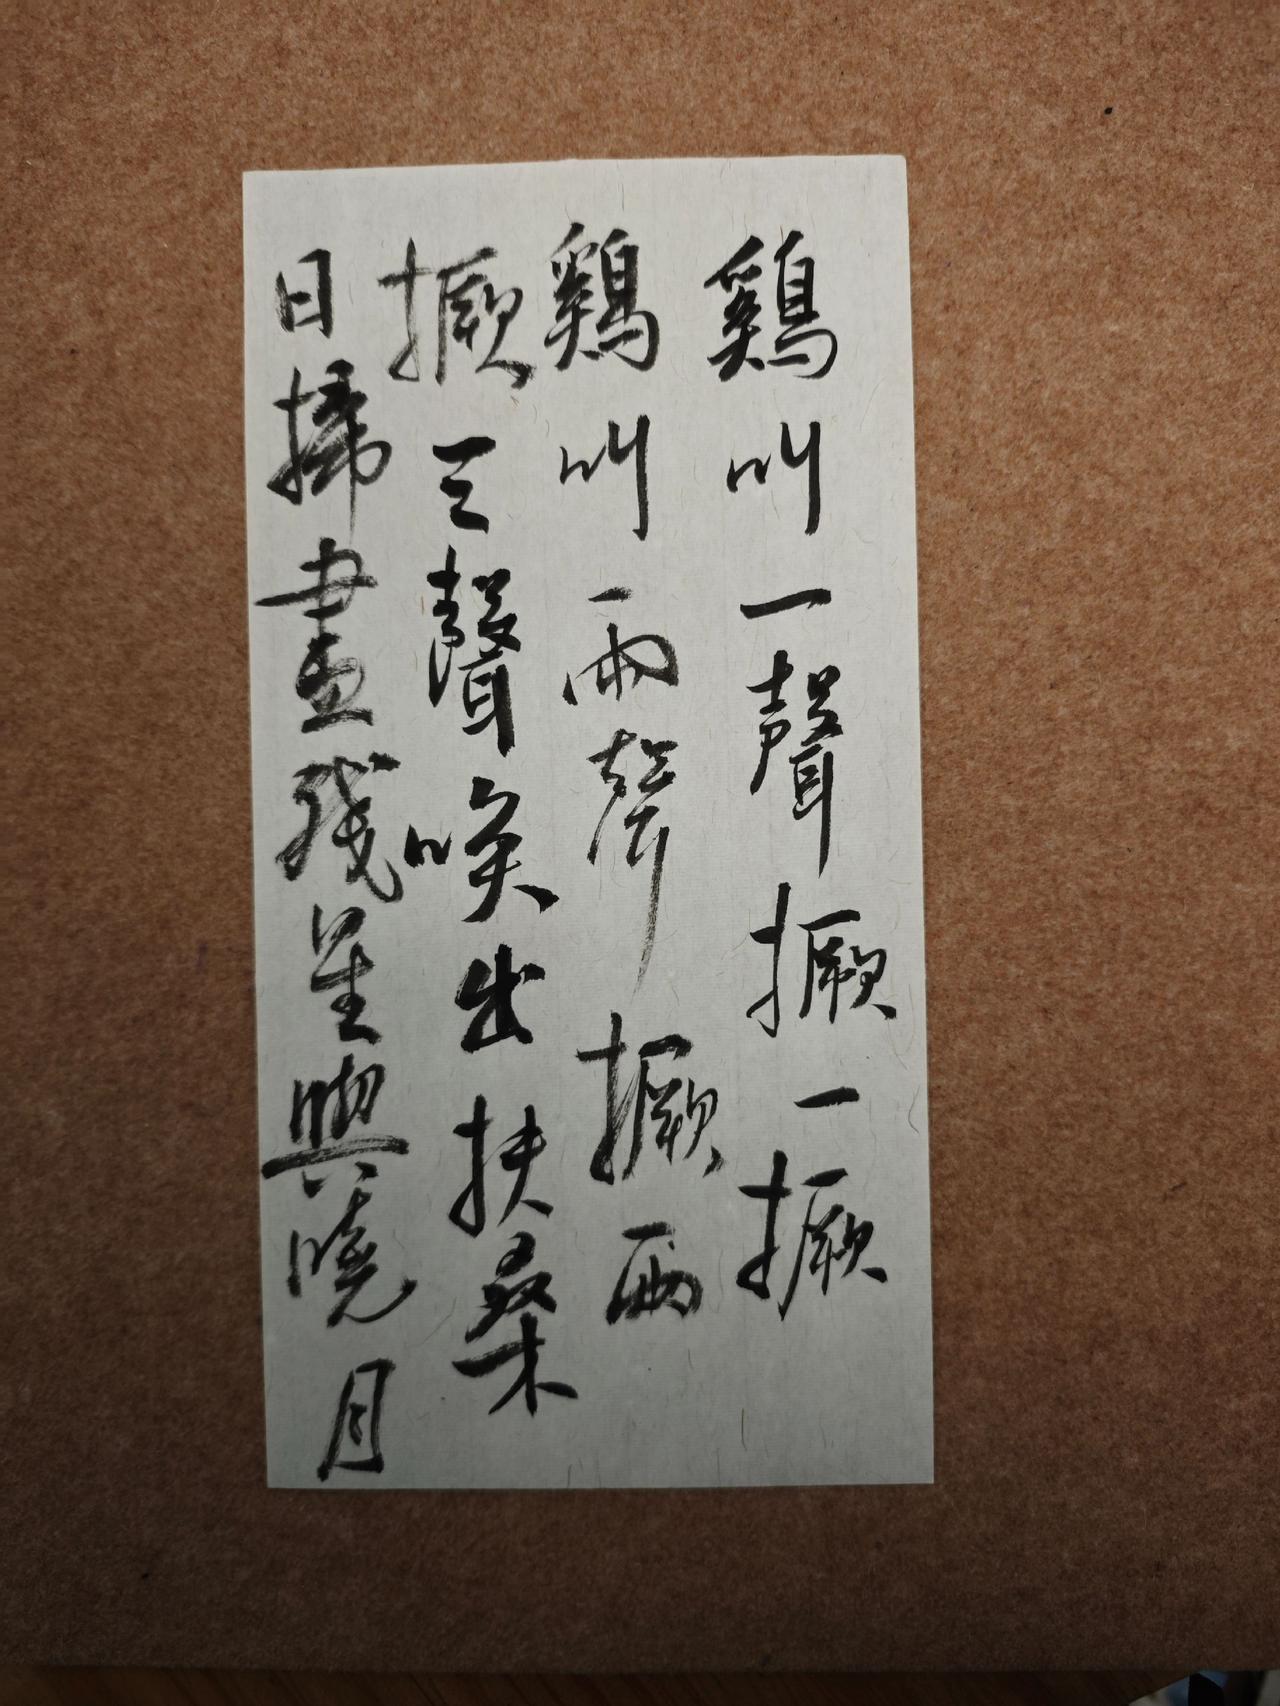 鷄叫一聲撅一撅
鷄叫兩聲撅兩
撅三聲唤出扶桑
日掃盡殘星與曉月